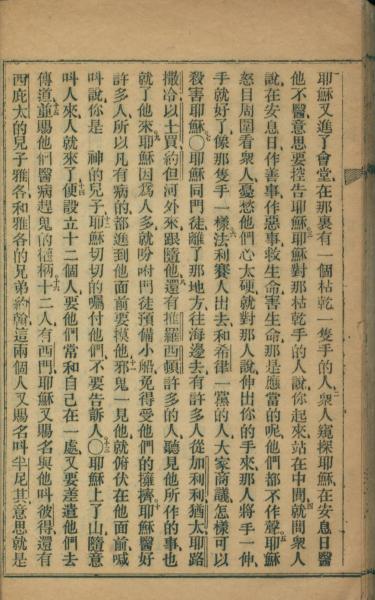 耶穌又進了會堂在那裏有一個枯乾一隻手的人衆人窺探耶穌在安息日醫
他不醫意思要控告耶穌耶穌對那枯乾手的人說你起來站在中間就問衆人
說在安息日作善事作惡事救生命害生命那是應當的呢他們都不作聲耶穌
怒目周圍看衆人憂愁他們心太硬就對那人說伸出你的手來那人將手一伸
手就好了像那隻手一樣法利賽人出去和希律一黨的人大家商議怎樣可以
殺害耶穌〇耶穌同門徒離了那地方往海邊去有許多人從加利利猶太耶路
撒冷以土買約但河外來跟隨他還有推羅西頓許多的人聽見他所作的事也
就了他來耶穌因爲人多就吩咐門徒預備小船免得受他們的擁擠耶穌醫好
許多人所以凡有病的都進到他面前要摸他邪鬼一見他就俯伏在他面前喊
叫說你是神的兒子耶穌切切的囑付他們不要告訴人〇耶穌上了山隨意
叫人來人就來了便設立十二個人要他們常和自己在一處又要差遣他們去
傳道並賜他們醫病趕鬼的權柄十二人有西門耶穌又賜名與他叫彼得還有
西庇太的兒子雅各和雅各的兄弟約翰這兩個人又賜名叫半尼其意思就是